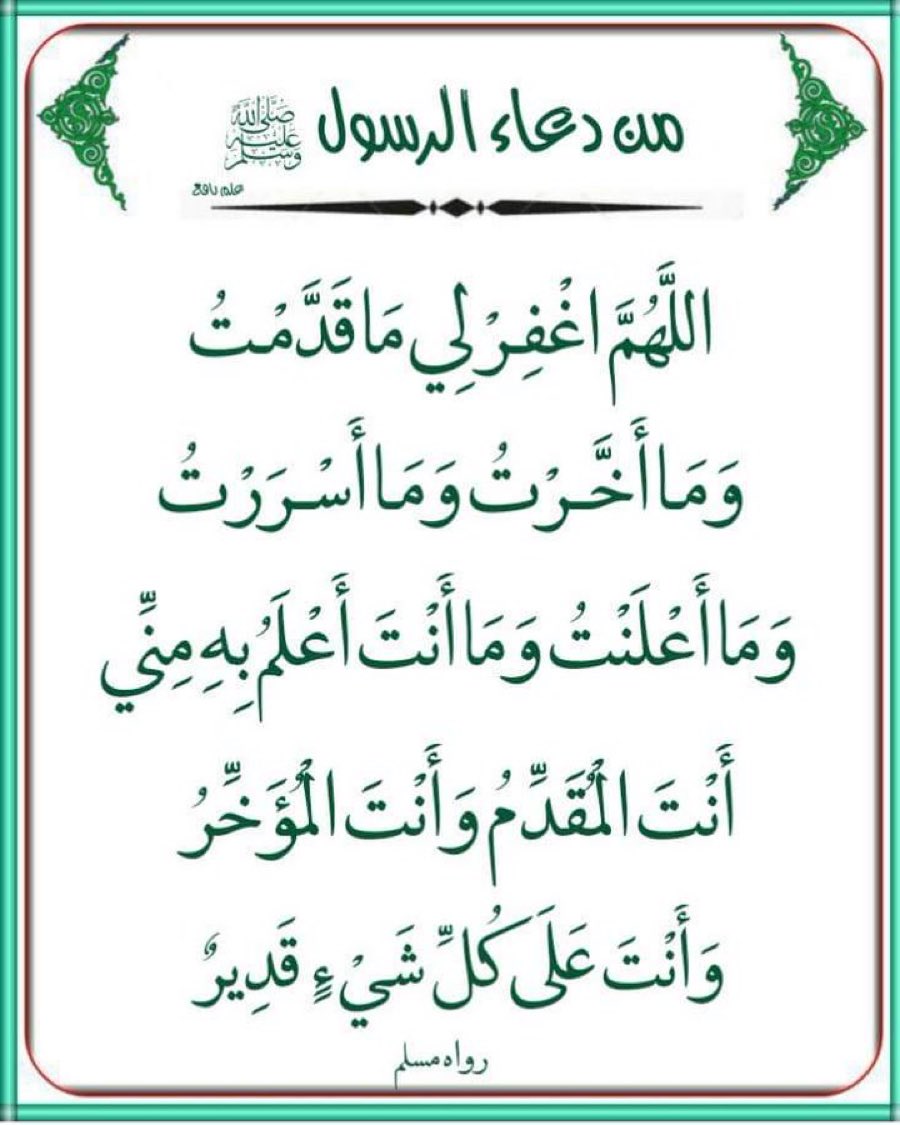 من دعاء الرسول ﷺ
علم نافع
اللَّهُمَّ اغْفِرْ لِي مَا قَدَّمْتُ
وَمَا أَخَّرْتُ وَمَا أَسْرَرْتُ
وَمَا أَعْلَنْتُ وَمَا أَنْتَ أَعْلَمُ بِهِ مِنِّي
أَنْتَ الْمُقَدِّمُ وَأَنْتَ الْمُؤَخِّرُ
وَأَنْتَ عَلَى كُلِّ شَيْءٍ قَدِيرٌ
رواه مسلم